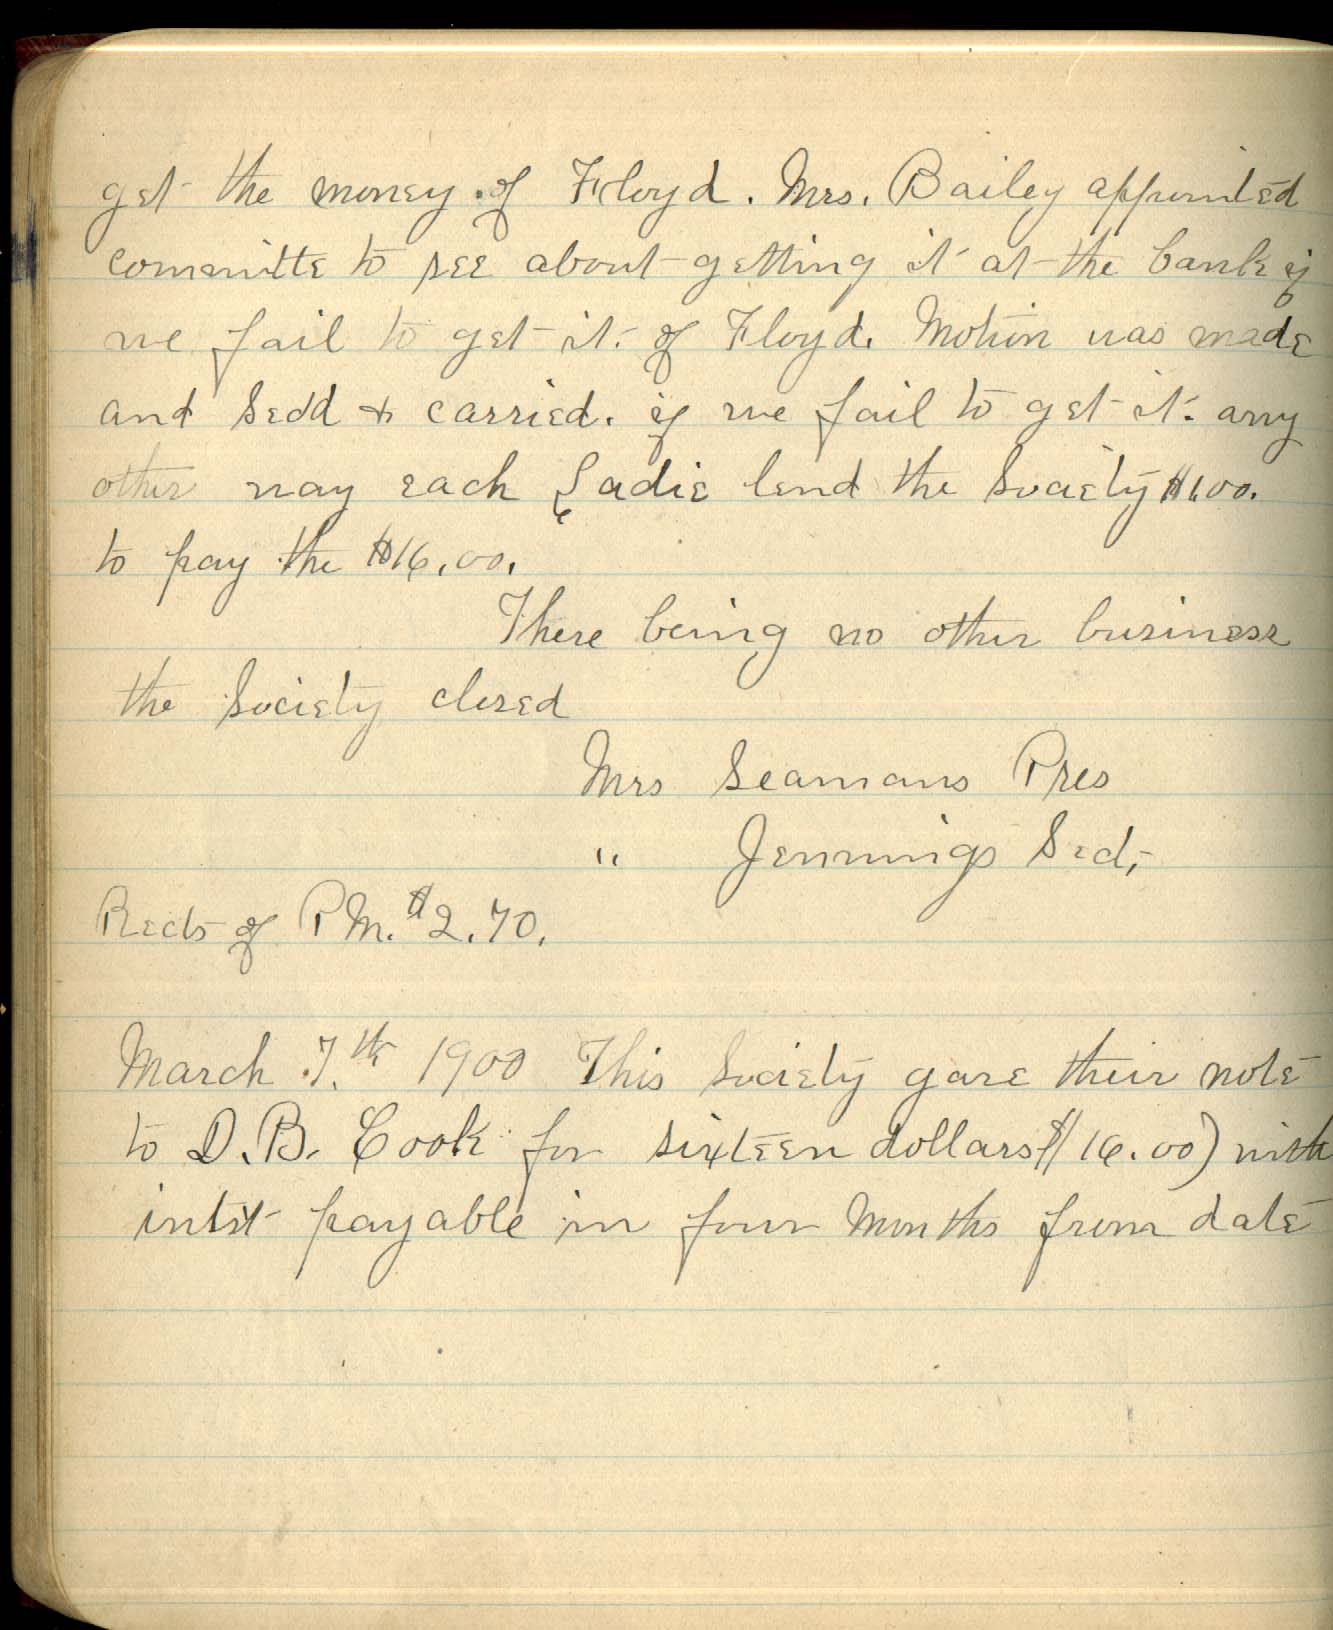 get the money of Floyd. Mrs. Bailey appointed
committe to see about getting it at the bank if
we fail to get it of Floyd. Motion was made
and Secd & carried. if we fail to get it any
other way each Ladie lend the Society $1.00.
to pay the $16.00.
There being no other business
the Society closed
Mrs Seamans Pres
" Jennings Sec,
Rects of P M. $2.70.
March 7.th 1900 This Society gave their note
to D.B. Cook for sixteen dollars $16.00) with
intst payable in four Months from date